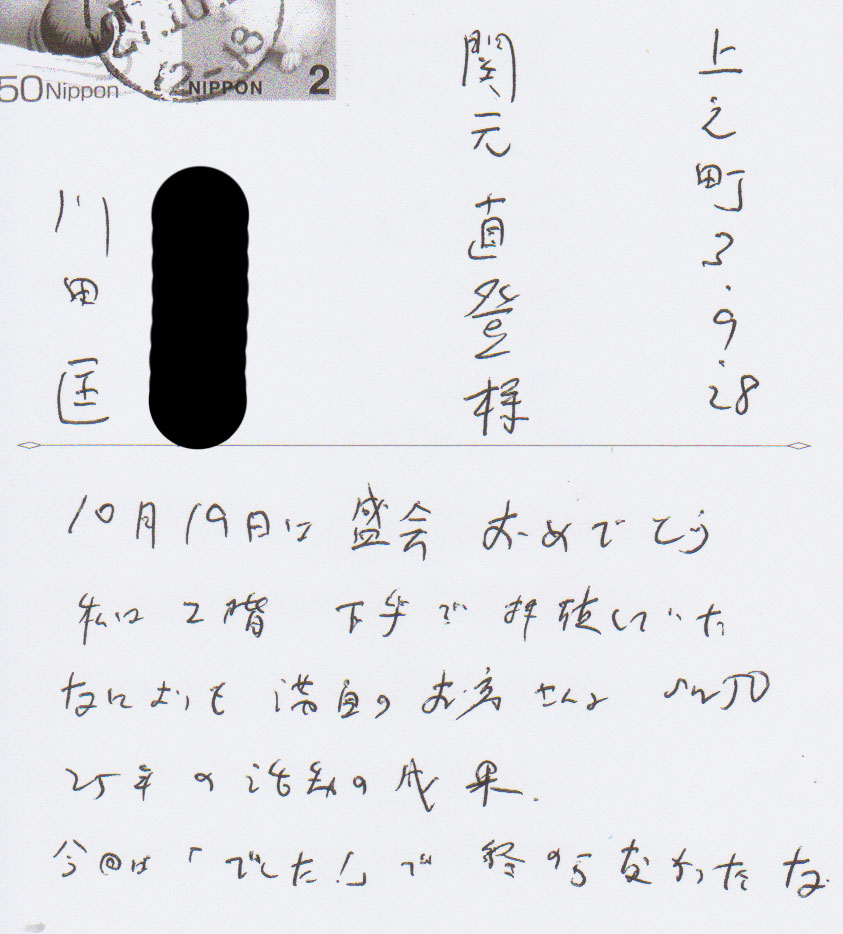 50 Nippon
NIPPON 2
12-18
上之町3.9.28
関元 直登 様
川田 匡
10月19日は 盛会 おめでとう
私は 2階 下手で 拝聴していた
なにより も 満員の お客 さんに
25年 の 活動の 成果.
今回は「でした!」で 終わらなかった な